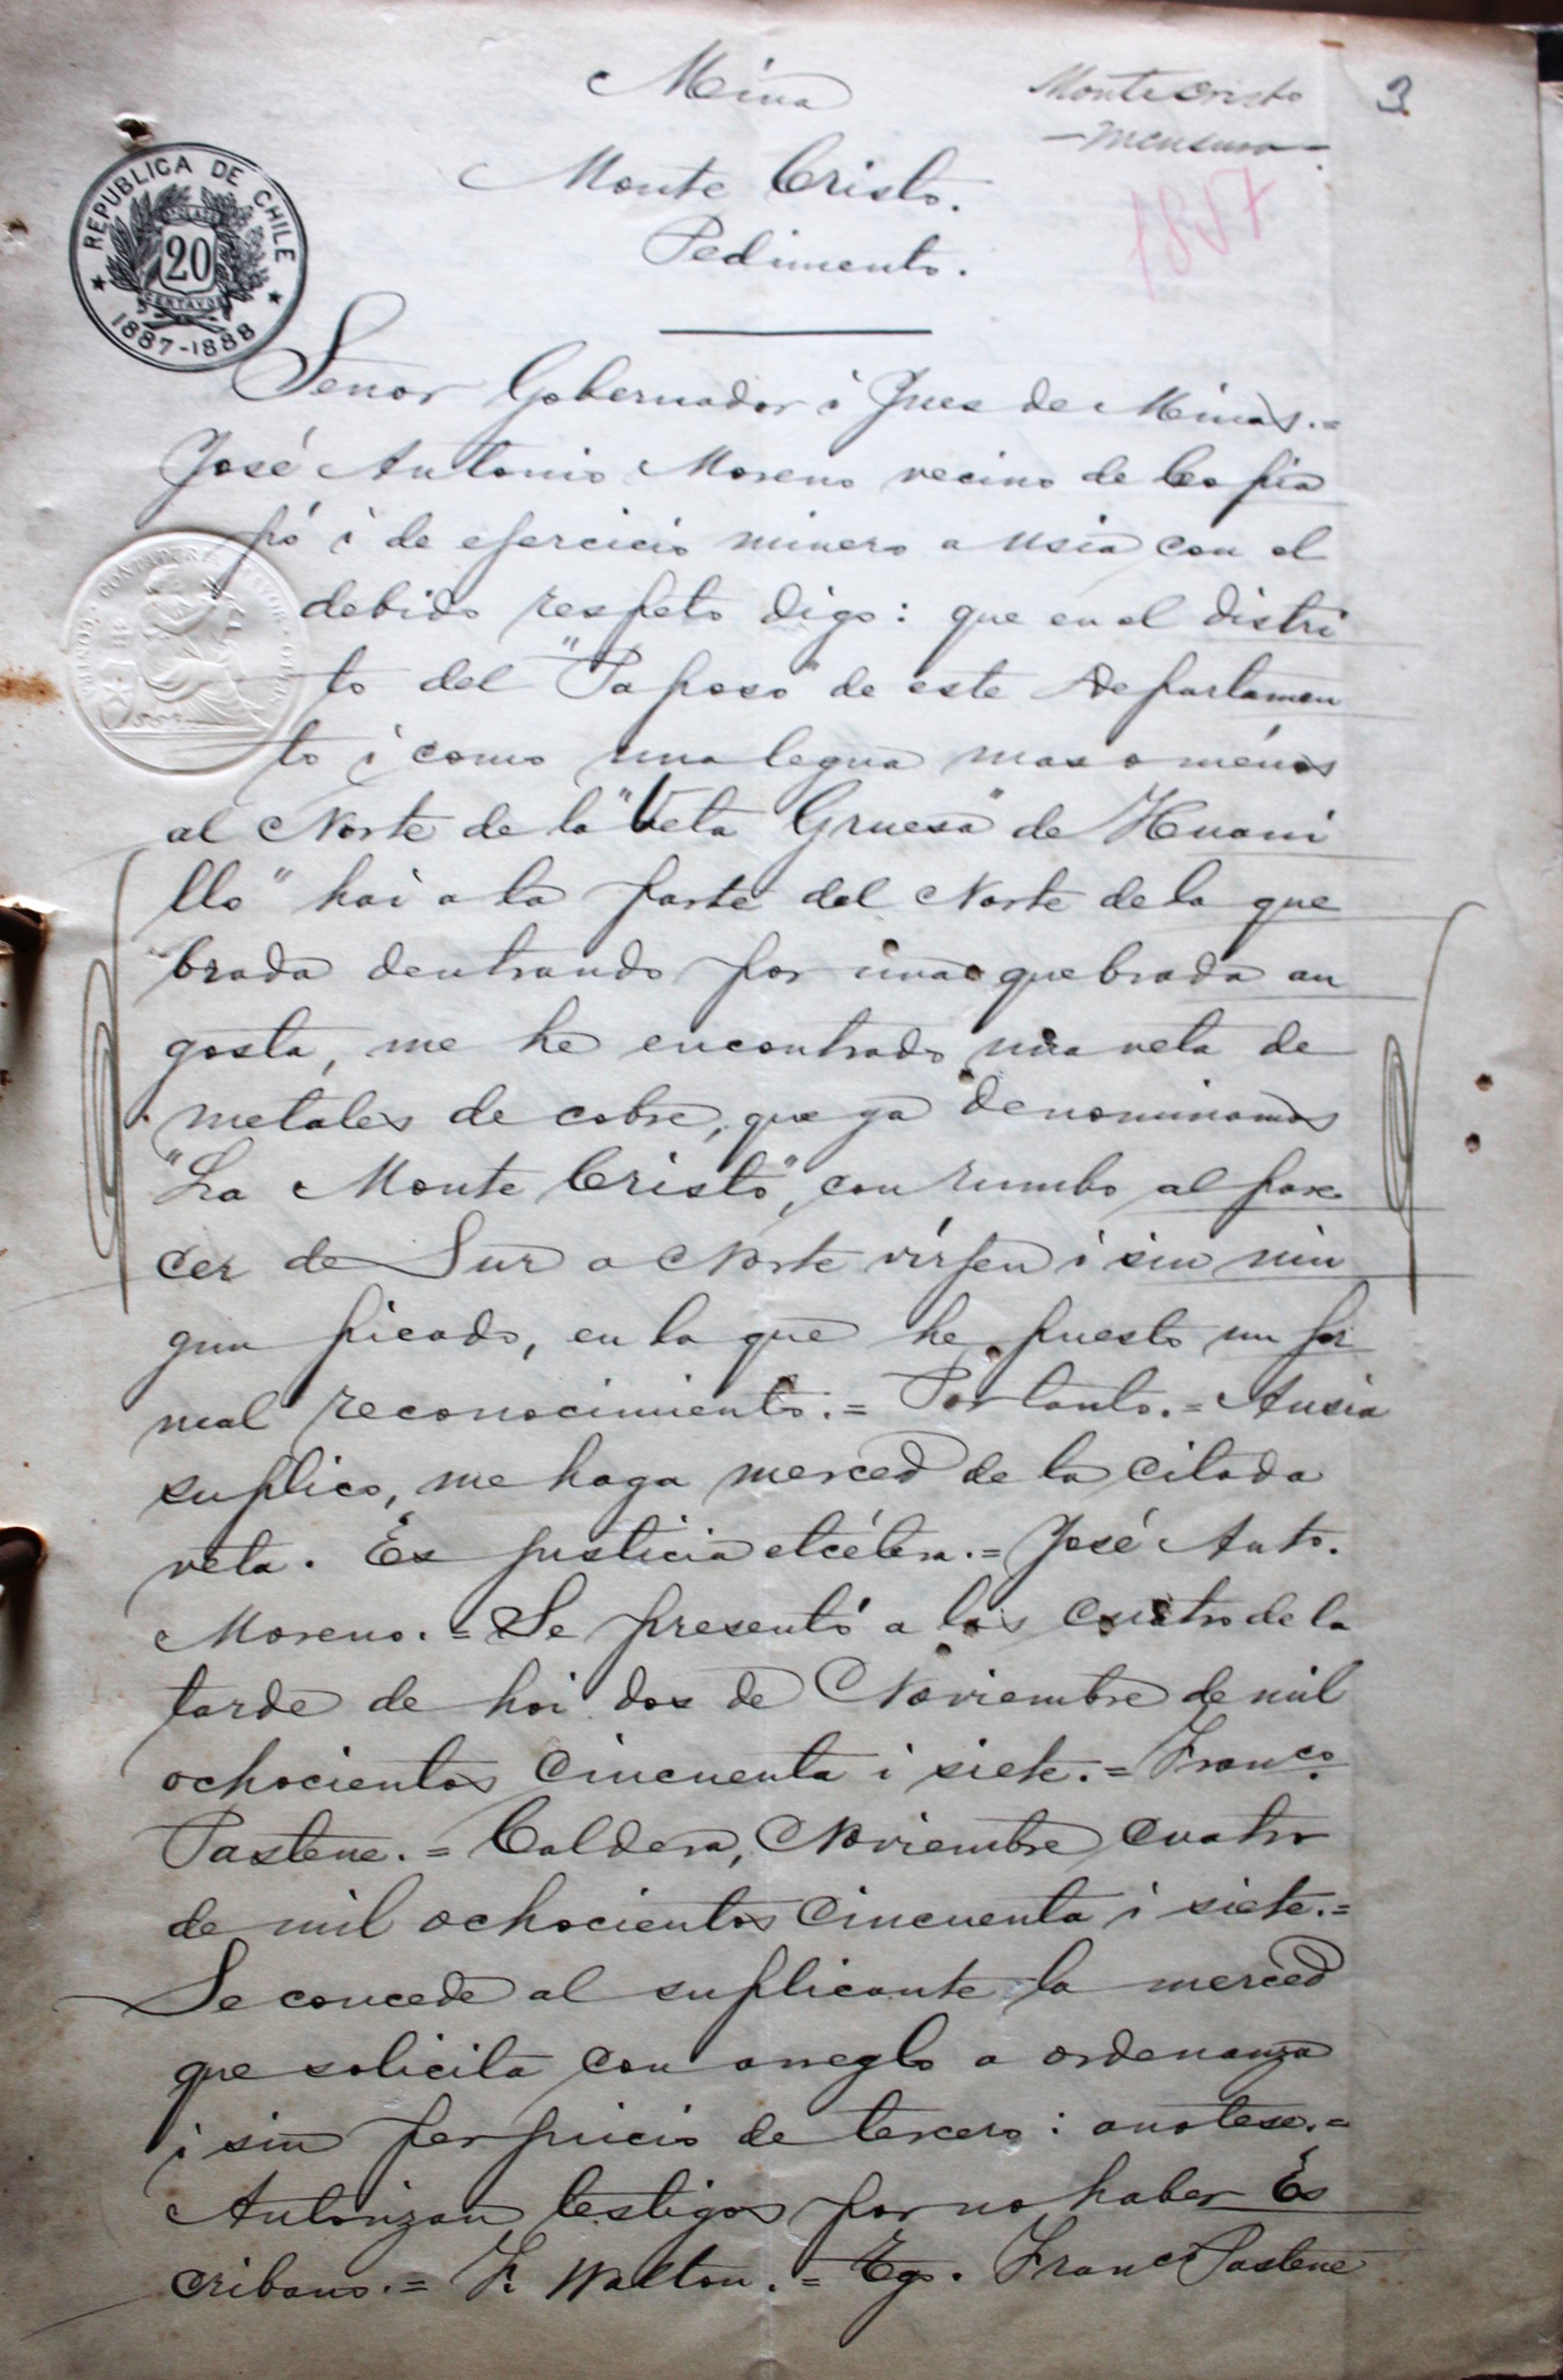 Mina
Monte Cristo
3
— mensura —
Monte Cristo.
1857
Pedimento.
REPUBLICA DE CHILE
20
CENTAVOS
1887-1888
Señor Gobernador i Juez de Minas.=
José Antonio Moreno vecino de Copia
pó i de ejercicio minero a Usia con el
debido respeto digo: que en el distri
to del "Paposo" de este Departamen
to i como una legua mas o ménos
al Norte de la "Veta Gruesa" de "Huani
llo" hai a la parte del Norte de la que
brada dentrando por una quebrada an
gosta, me he encontrado una veta de
metales de cobre, que ya denominamos
"La Monte Cristo", con rumbo al pare
cer de Sur a Norte vírjen i sin nin
gun picado, en la que he puesto un for
mal reconocimiento.= Por tanto.= A usia
suplico, me haga merced de la citada
veta. Es justicia etcétera.= José Anto.
Moreno.= Se presentó a las cuatro de la
tarde de hoi dos de Noviembre de mil
ochocientos cincuenta i siete.= Franco.
Pastene.= Caldera, Noviembre cuatro
de mil ochocientos cincuenta i siete.=
Se concede al suplicante la merced
que solicita con arreglo a ordenanza
i sin perjuicio de tercero: anotese.=
Autorizan testigos por no haber Es
cribano.= F. Walton.= Tgo. Franco Pastene